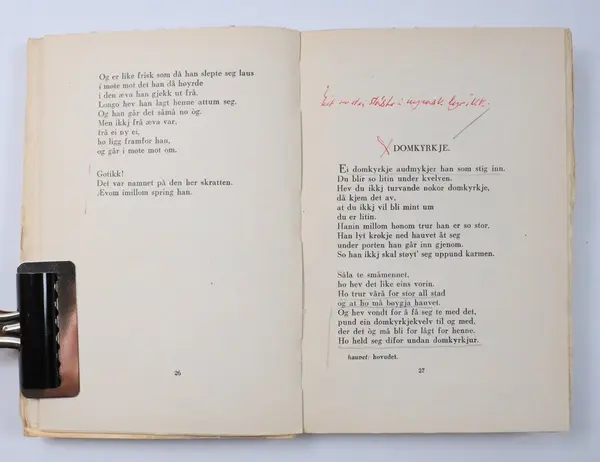 Og er like frisk som då han slepte seg laus
i møte mot det han då høyrde
i den æva han gjekk ut frå.
Longo hev han lagt henne attum seg.
Og han går det såmå no òg.
Men ikkj frå æva var,
frå ei ny ei,
ho ligg framfor han,
og går i møte mot om.
Gotikk!
Det var namnet på den her skratten.
Ævom imillom spring han.
26
Eit av dei største i nynorsk lyrikk.
DOMKYRKJE.
Ei domkyrkje audmykjer han som stig inn.
Du blir so litin under kvelven.
Hev du ikkj turvande nokor domkyrkje,
då kjem det av,
at du ikkj vil bli mint um
du er litin.
Hanin millom honom trur han er so stor,
Han lyt krøkje ned hauvet åt seg
under porten han går inn gjenom.
So han ikkj skal støyt' seg uppund karmen.
Såla te småmennet,
ho hev det like eins vorin.
Ho trur vårå for stor all stad
og at ho må bøygja hauvet.
Og hev vondt for å få seg te med det,
pund ein domkyrkjekvelv til og med,
der det òg må bli for lågt for henne.
Ho held seg difor undan domkyrkjur.
hauvet: hovudet.
27